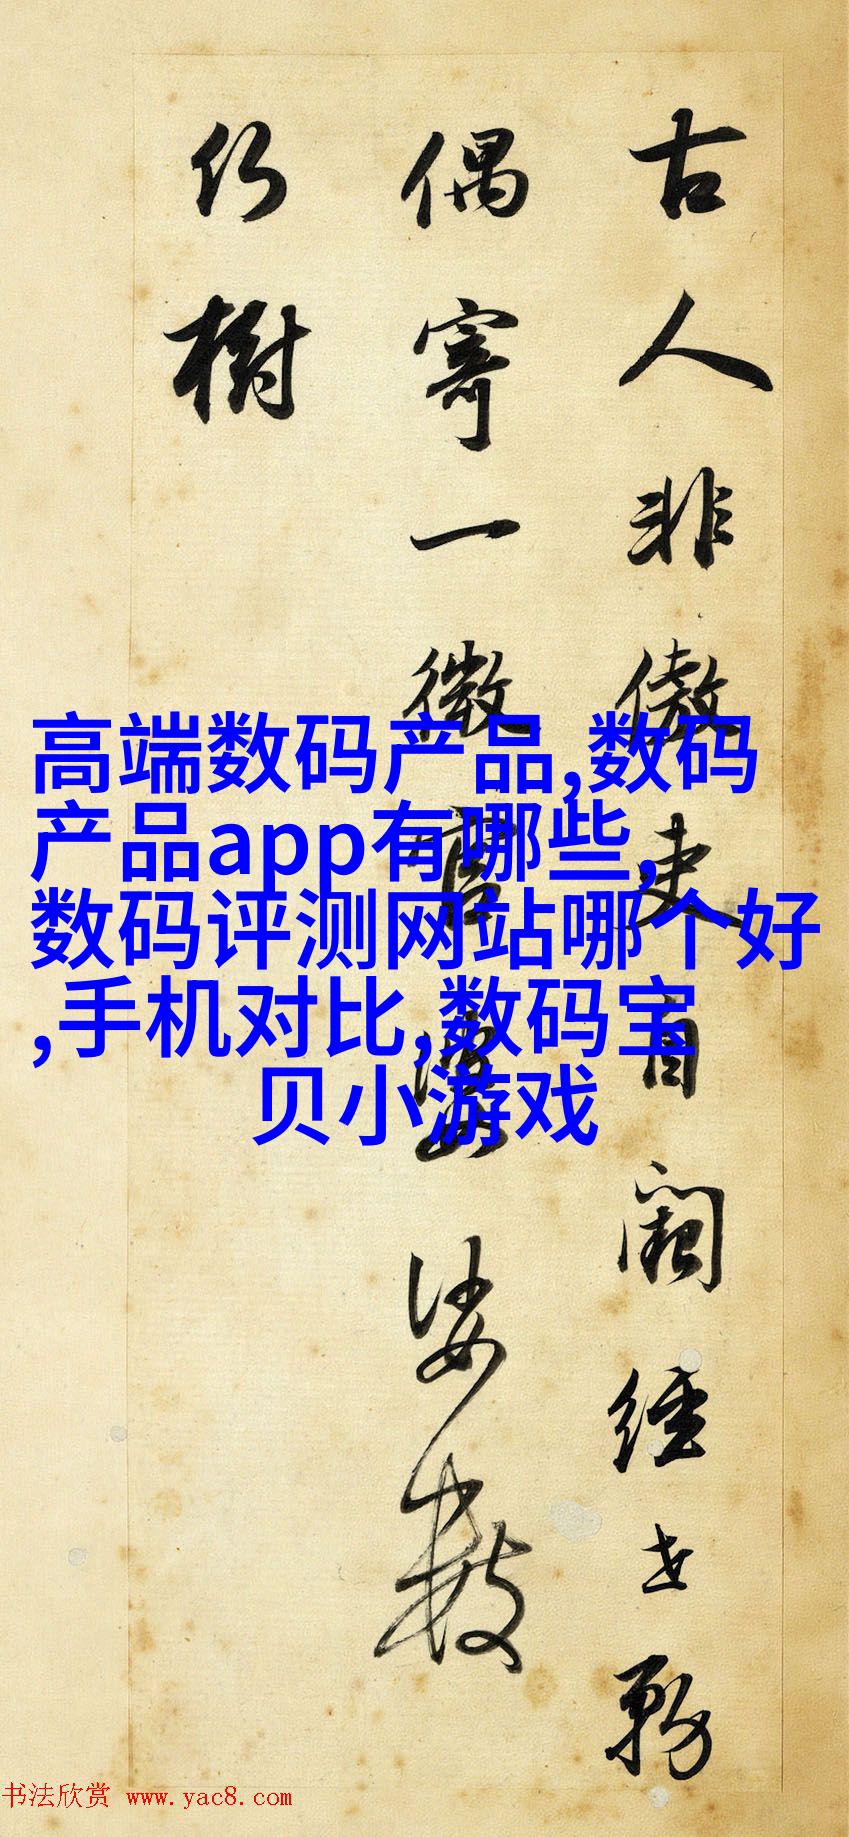 古人非傲吏自闕經世務
偶寄一微官婆娑數
樹
高端数码产品,数码
产品app有哪些,
数码评测网站哪个好
,手机对比,数码宝
贝小游戏
书法欣赏 www.yac8.com